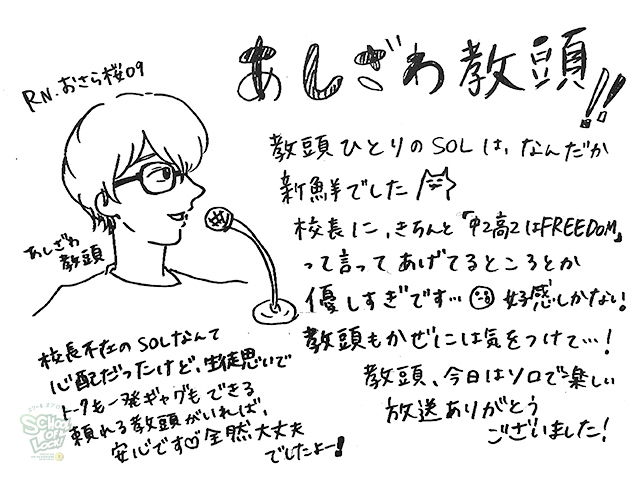 あしざわ教頭!!
RN.おさら桜09
教頭ひとりのSOLは、なんだか
新鮮でした
校長に、きちんと「中2高2はFREEDOM」
って言ってあげてるところとか
優しすぎです… 好感しかない!
教頭もかぜには気をつけて…!
教頭、今日はソロで楽しい
放送ありがとう
ございました!
あしざわ
教頭
校長不在のSOLなんて
心配だったけど、生徒思いで
トークも一発ギャグもできる
頼れる教頭がいれば、
安心です♡全然大丈夫
でしたよー!
SCHOOL
OF
LOCK!